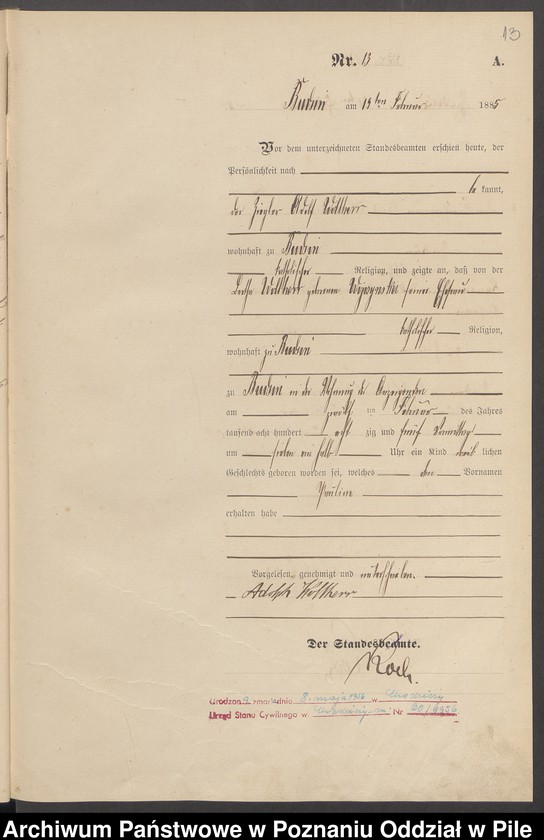 13
Nr. 13 A.
am 13ten Februar 1885
Vor dem unterzeichneten Standesbeamten erschien heute, der
Persönlichkeit nach
be kannt,
der Ziegler Adolf
wohnhaft zu
katholischer Religion, und zeigte an, daß von der
geborenen seiner Ehefrau
katholischer Religion,
wohnhaft zu
zu in der Wohnung des Anzeigenden
am zwölften Februar des Jahres
tausend acht hundert acht zig und fünf Vormittags
um sieben ein halb Uhr ein Kind weib lichen
Geschlechts geboren worden sei, welches den Vornamen
Pauline
erhalten habe
Vorgelesen, genehmigt und unterschrieben.
Adolph
Der Standesbeamte.
Koch.
Urodzona zmarł dnia 8. maja 1956 w
Urząd Stanu Cywilnego w Nr 60/1956
Archiwum Państwowe w Poznaniu Oddział w Pile